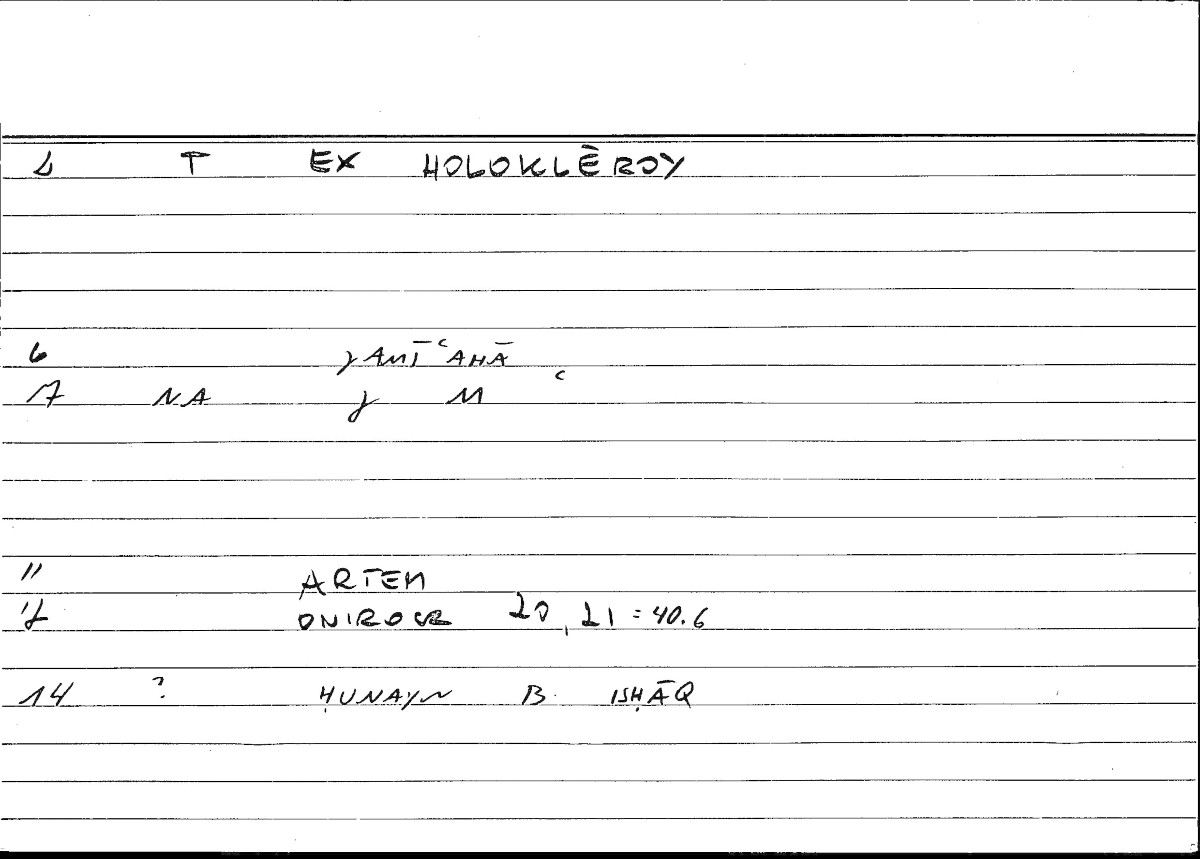 1 T EX HOLOKLĒROY
6 JAMĪʿAHĀ
7 NA J M ʿ
11 ARTEM
12 ONIROCR 20, 21 = 40.6
14 ? ḤUNAYN B. ISḤĀQ